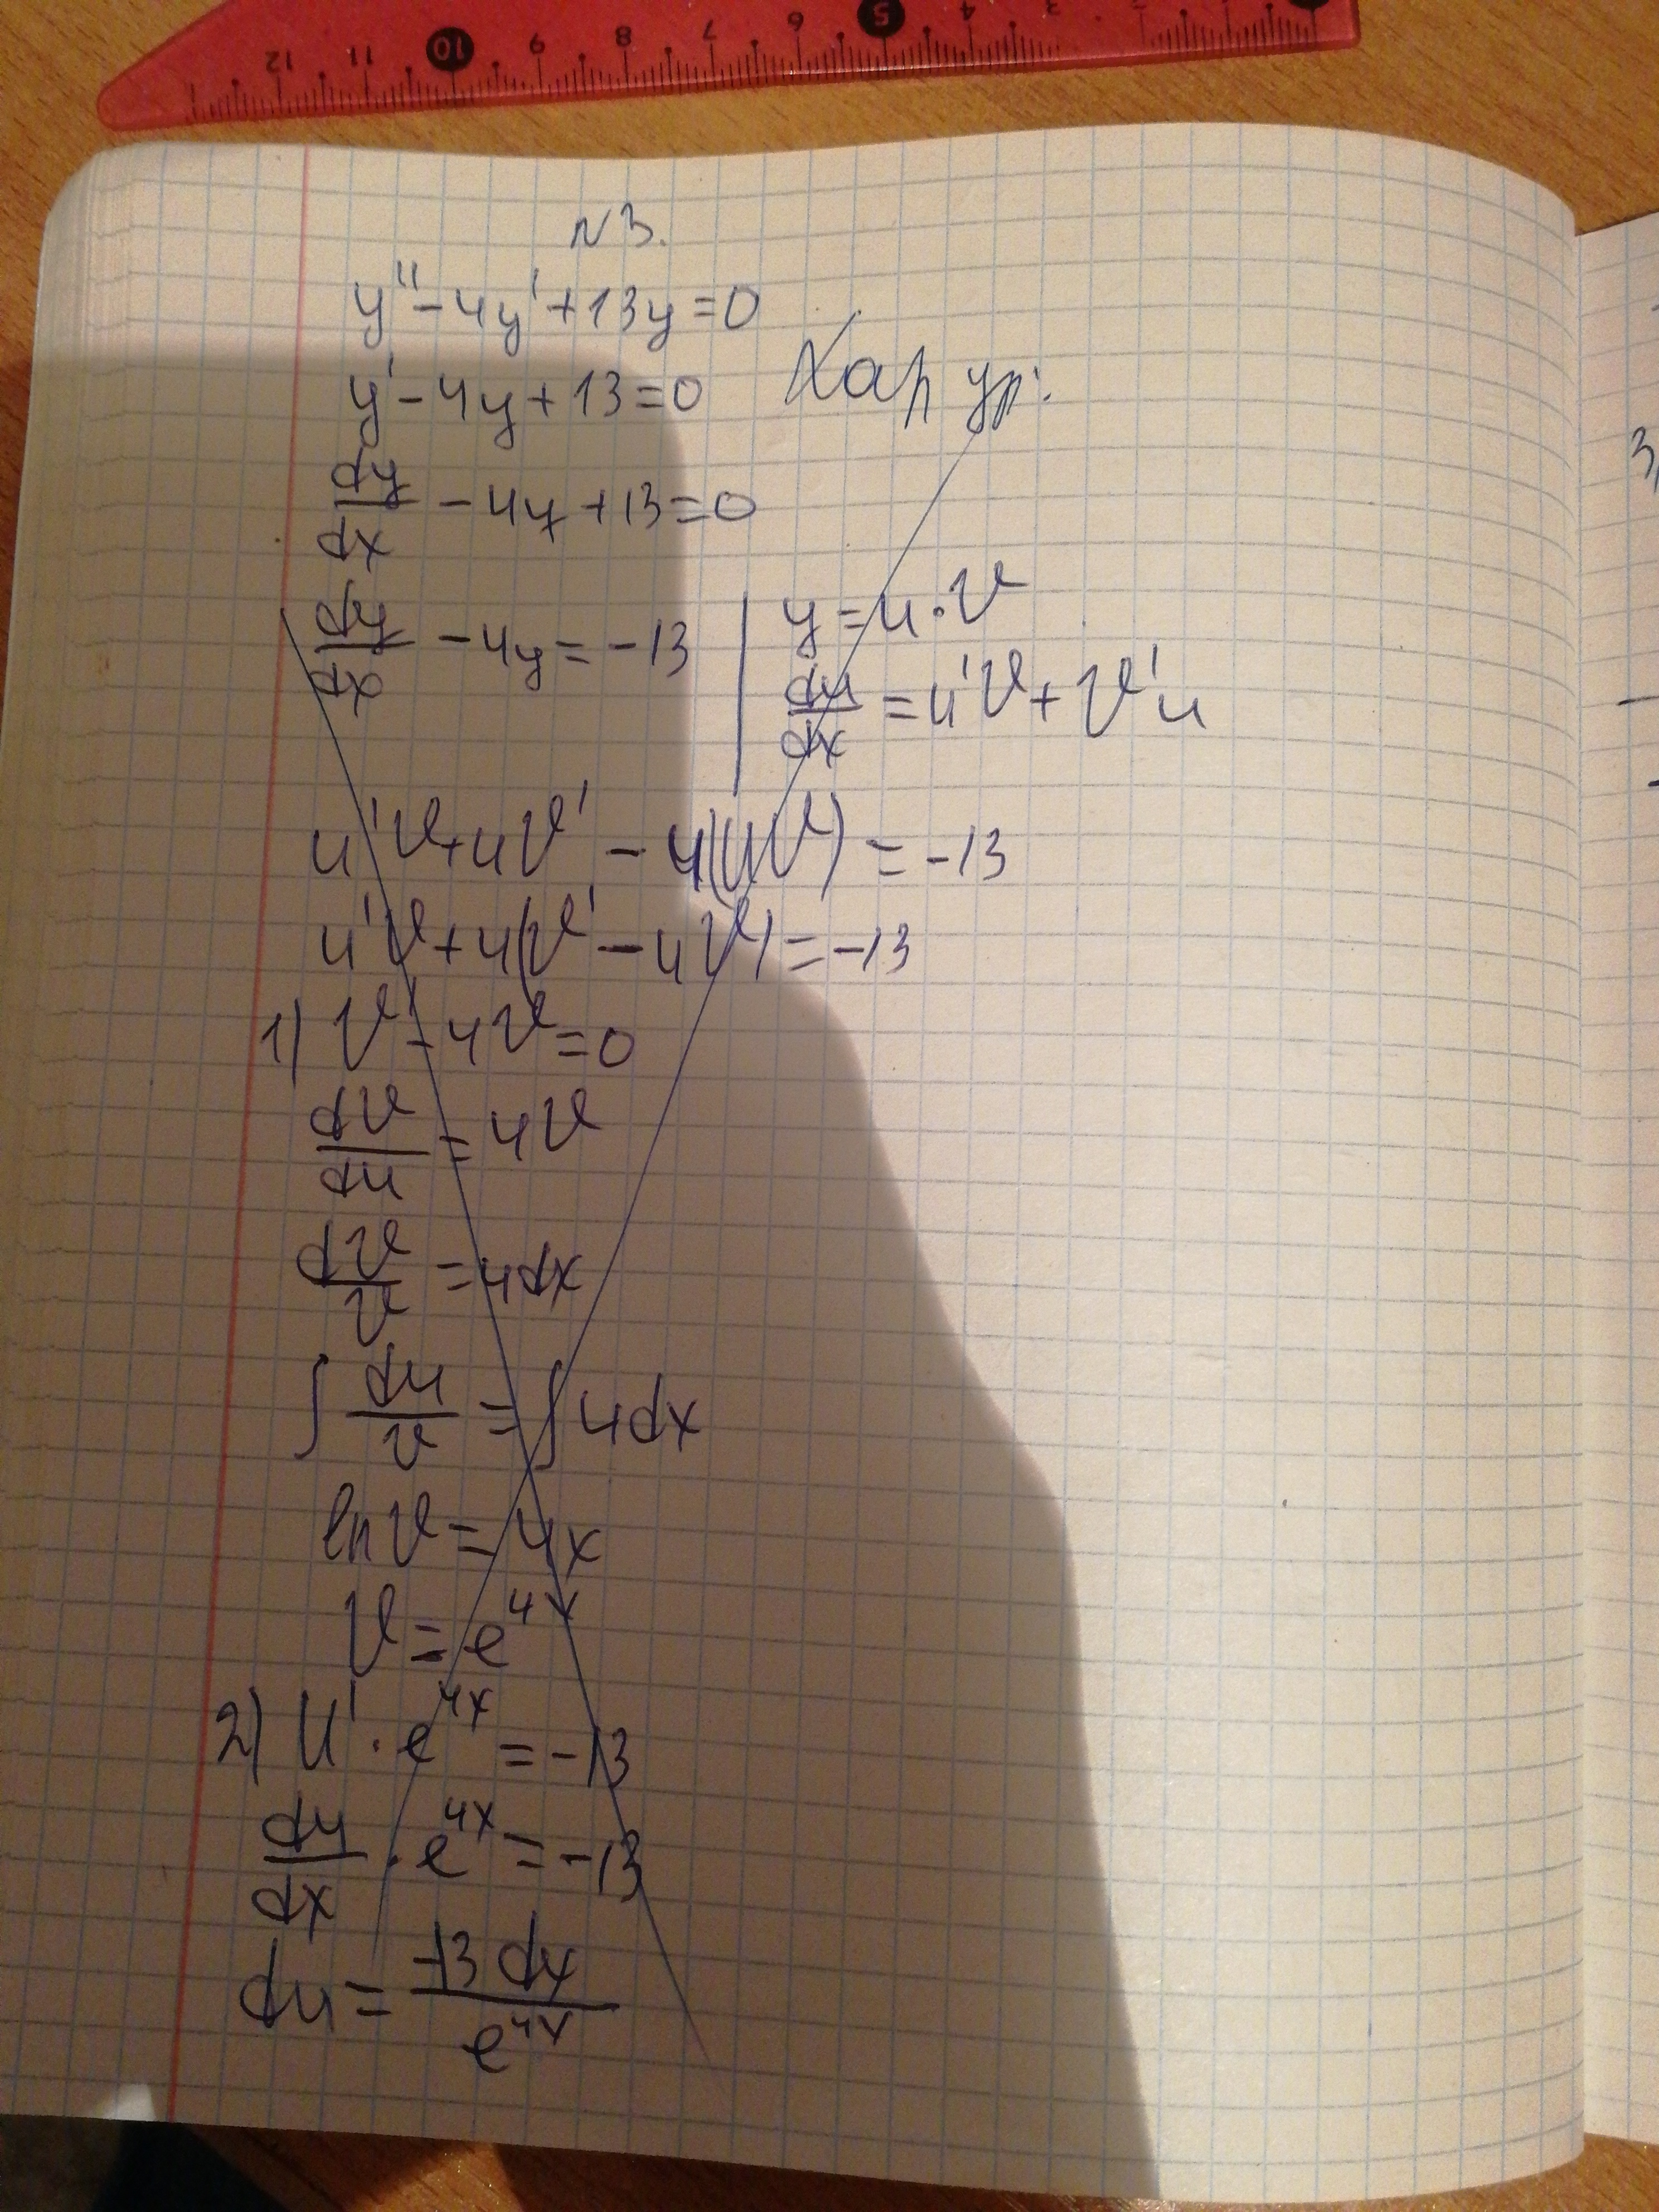 12 11 10 9 8 7 6 5 4 3
N3.
y'' - 4y' + 13y = 0
y' - 4y + 13 = 0 Хар ур:
dy/dx - 4y + 13 = 0
dy/dx - 4y = -13 | y = u·v
du/dx = u'v + v'u
u'v + uv' - 4(uv) = -13
u'v + u(v' - 4v) = -13
1) v' - 4v = 0
dv/du = 4v
dv/v = 4dx
∫ du/v = ∫ 4dx
ln v = 4x
v = e^4x
2) u' · e^4x = -13
dy/dx · e^4x = -13
du = -13 dx / e^4x
3